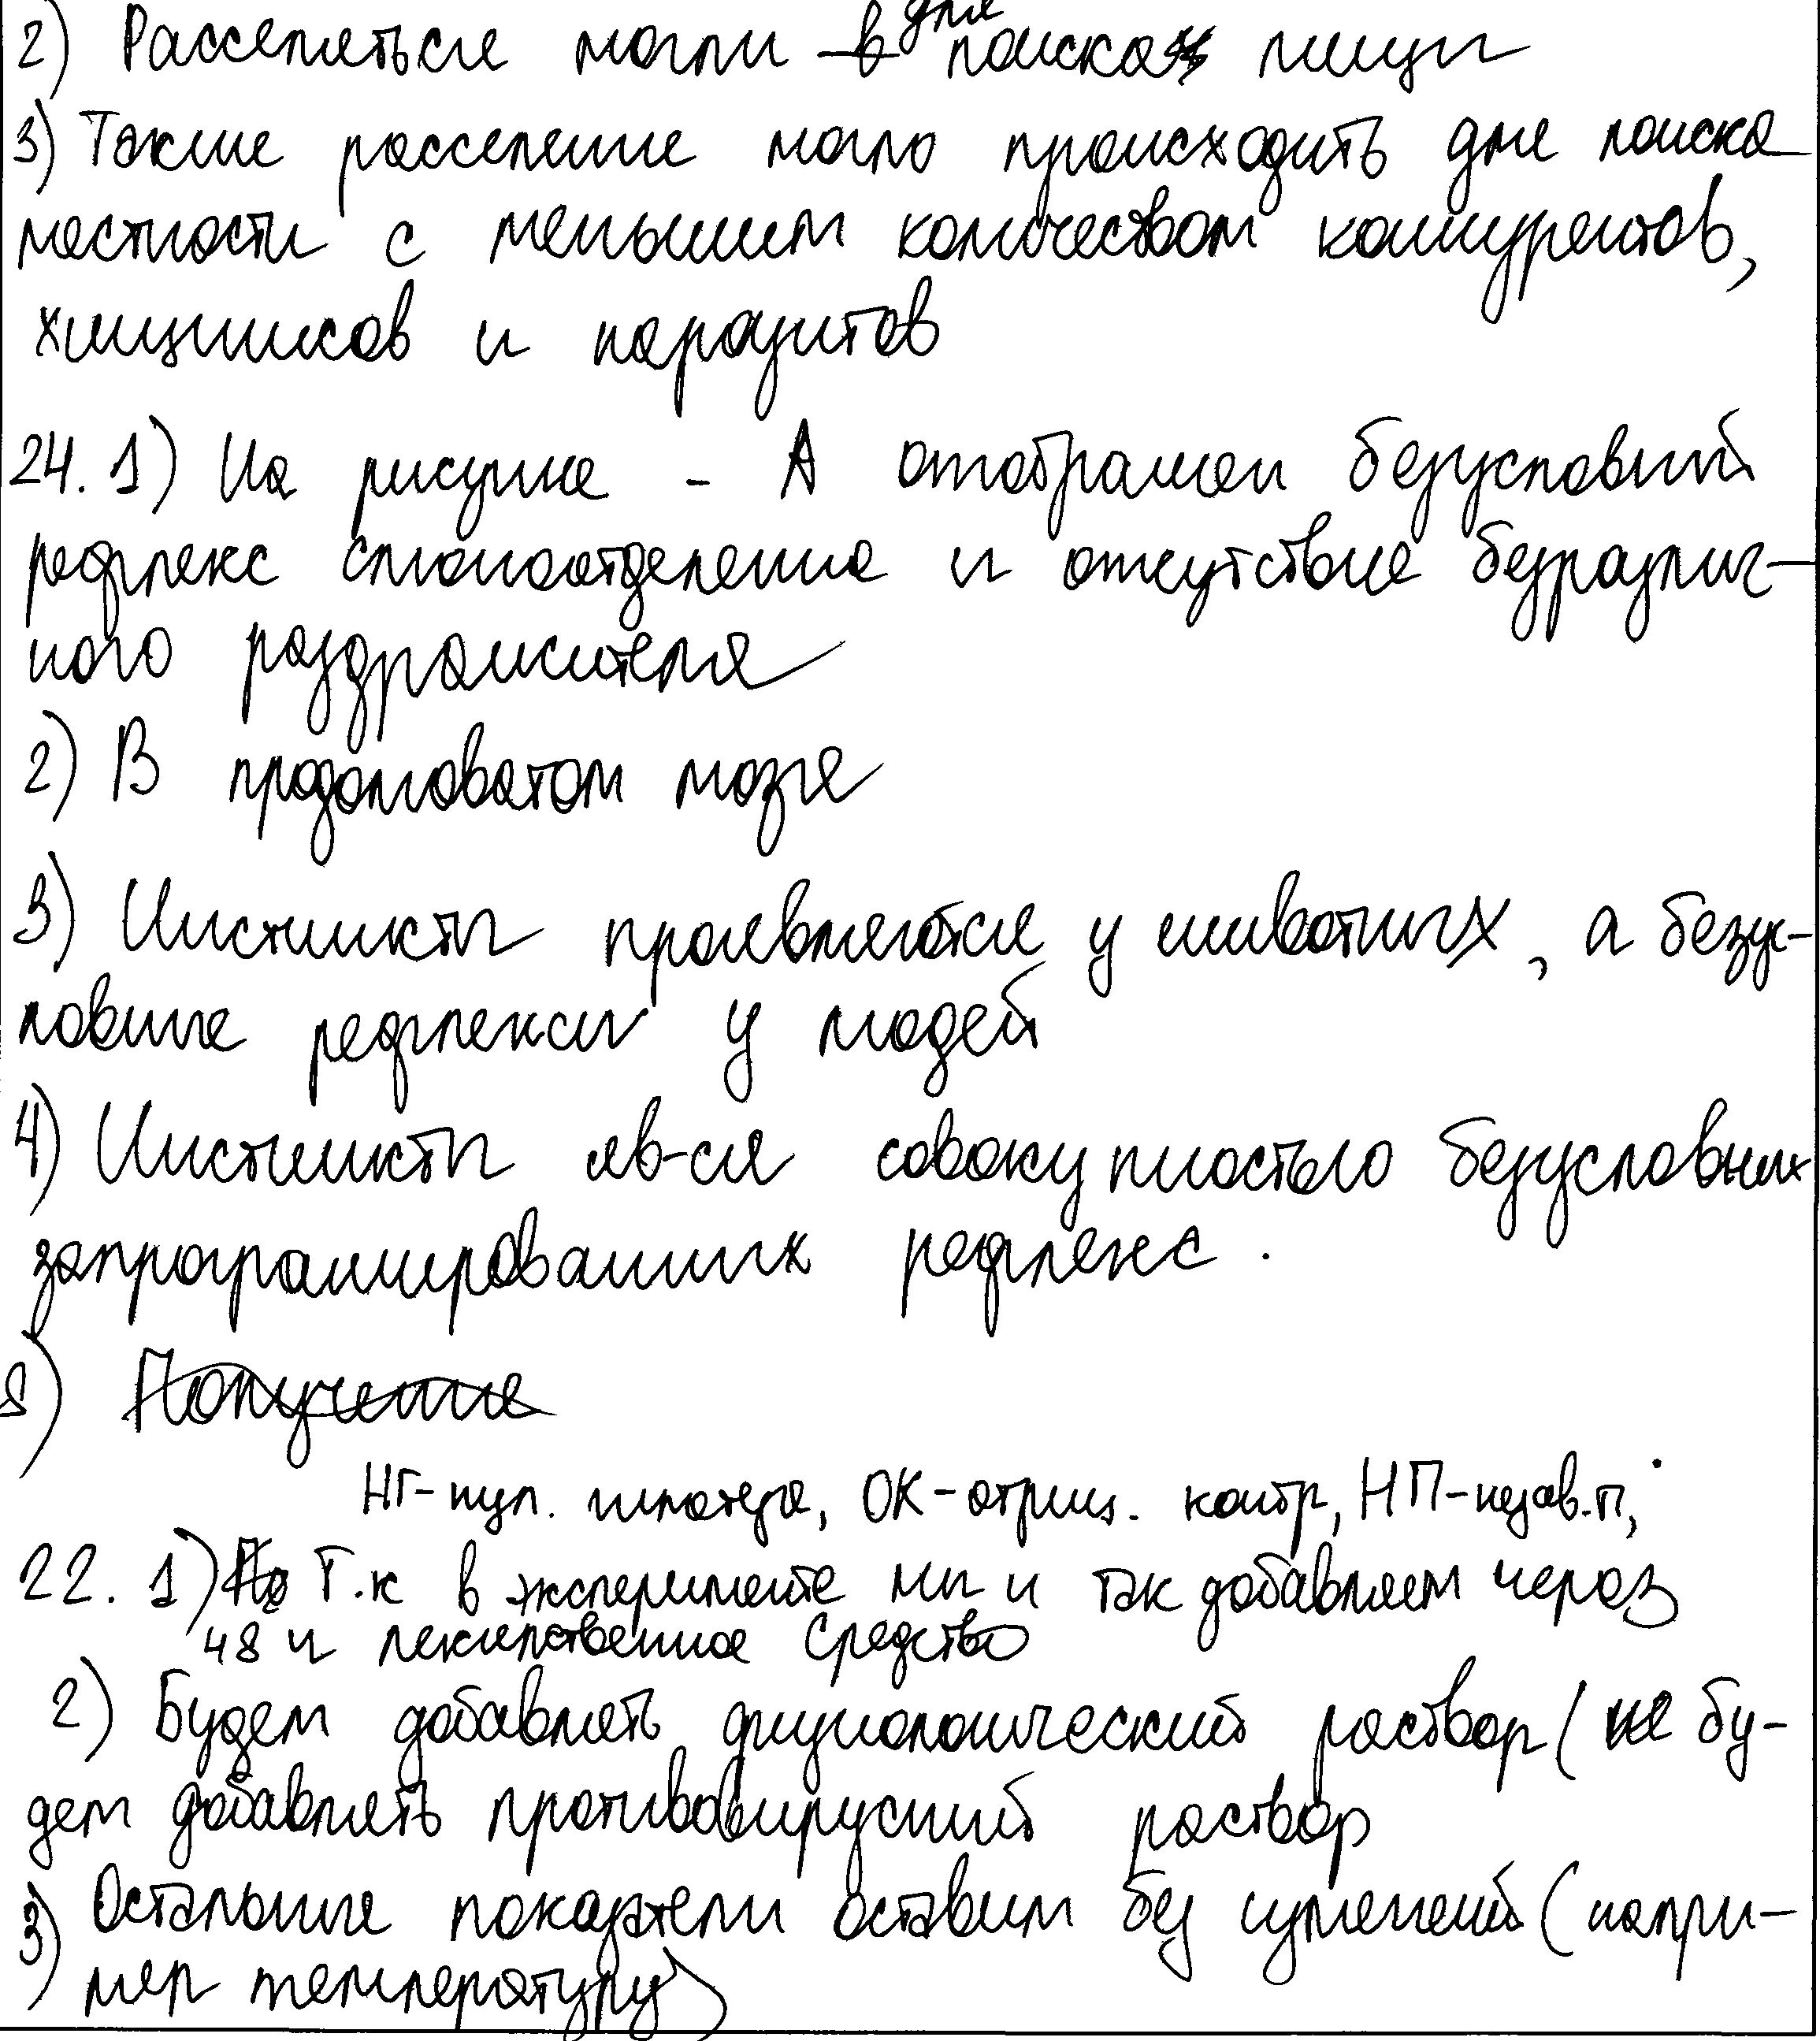 2) Расселяться могли в для поиска пищи
3) Такие расселение могло происходить для поиска
местности с меньшим количеством конкурентов,
хищников и паразитов
24. 1) На рисунке - А отображен безусловный
рефлекс слюноотделение и отсутствие безразлич-
ного раздражителя
2) В продолговатом мозге
3) Инстинкты проявляются у животных, а безус-
ловные рефлексы у людей
4) Инстинкты яв-ся совокупностью безусловных
запрограмированных рефлекс.
5) Получение
НГ-нул. гипотеза, ОК-отриц. контр, НП-незав.п,
22. 1) По Т.к в эксперименте мы и так добавляем через
48 ч лекарственное средство
2) Будем добавлять физиологический раствор (не бу-
дем добавлять противовирусный раствор
3) Остальные показатели оставим без изменений (напри-
мер температуру)